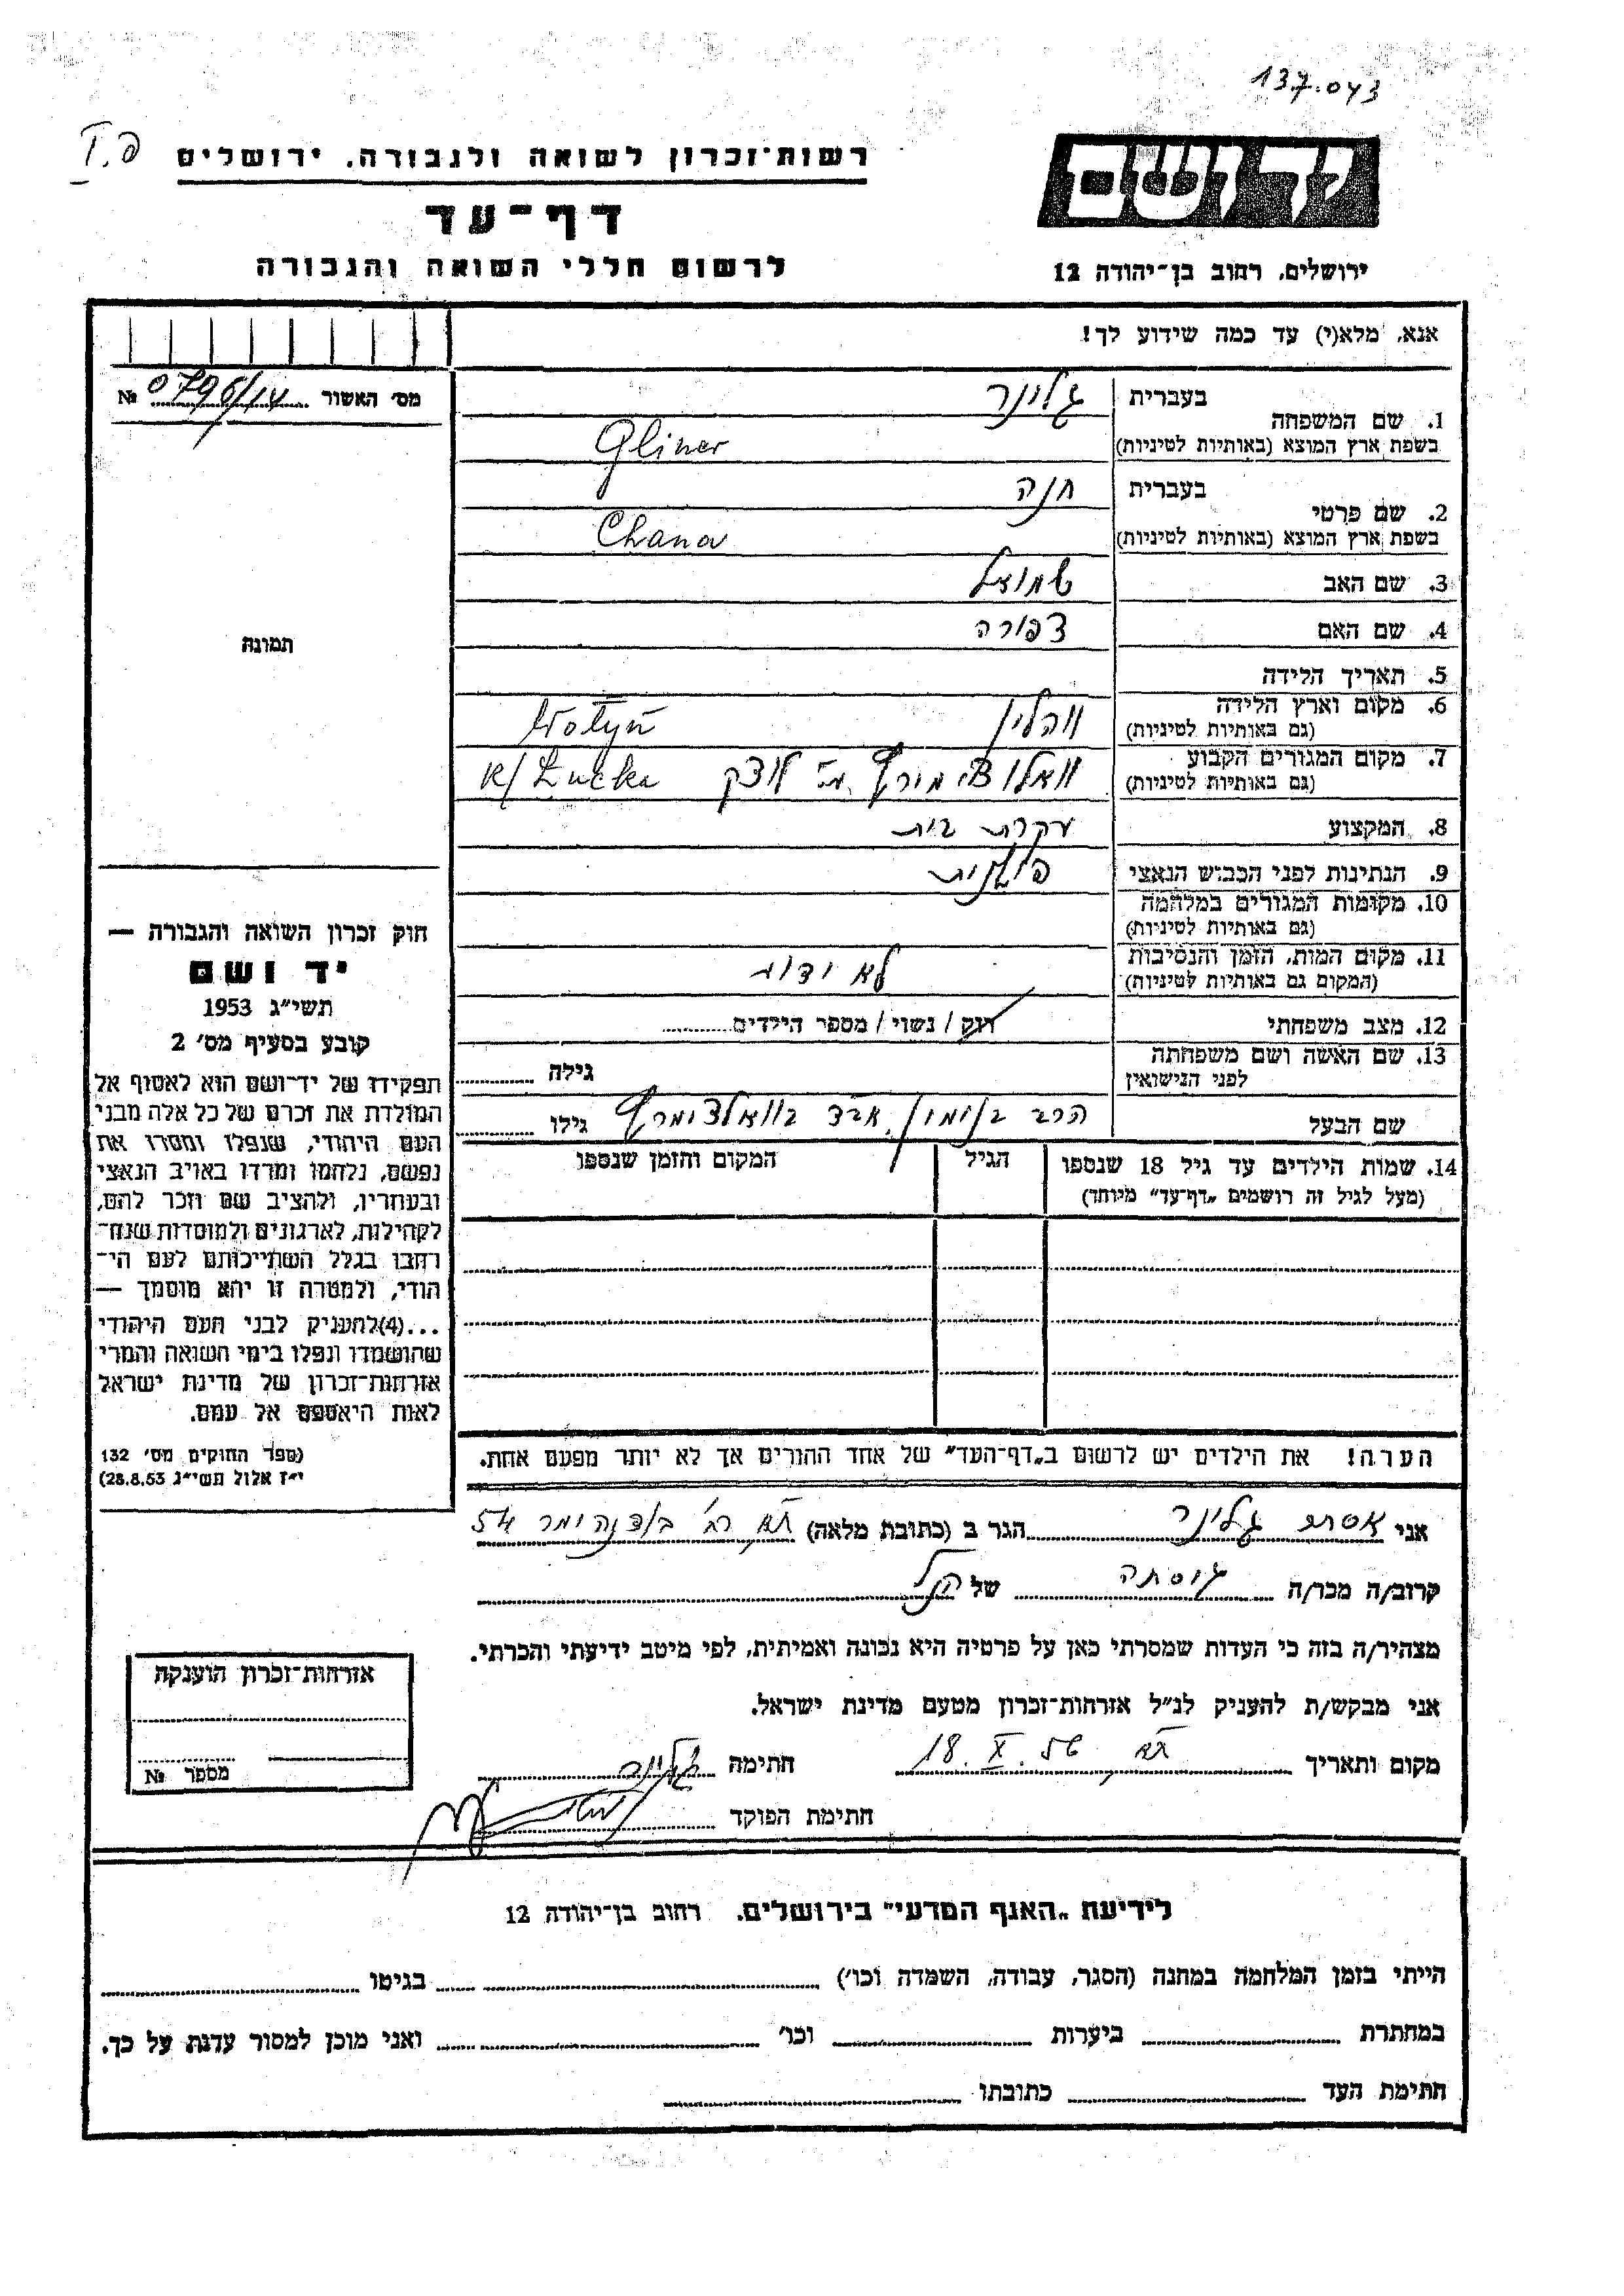 137.043
פ. I
רשות־זכרון לשואה ולגבורה, ירושלים
יד ושם
דף־עד
לרשום חללי השואה והגבורה
ירושלים, רחוב בן־יהודה 12
אנא, מלא(י) עד כמה שידוע לך!
מס׳ האשור № 0796/14
1. שם המשפחה
בעברית גלינר
בשפת ארץ המוצא (באותיות לטיניות) Gliner
2. שם פרטי
בעברית חנה
בשפת ארץ המוצא (באותיות לטיניות) Chana
3. שם האב שמואל
4. שם האם צפורה
תמונה
5. תאריך הלידה
6. מקום וארץ הלידה
(גם באותיות לטיניות) ווהלין Wołyń
7. מקום המגורים הקבוע
(גם באותיות לטיניות) לוצק k/Łucka
8. המקצוע עקרת בית
9. הנתינות לפני הכבוש הנאצי פולנית
10. מקומות המגורים במלחמה
(גם באותיות לטיניות)
11. מקום המות, הזמן והנסיבות
(המקום גם באותיות לטיניות) לא ידוע
12. מצב משפחתי רוק / נשוי / מספר הילדים
13. שם האשה ושם משפחתה
לפני הנישואין גילה
שם הבעל הרב בנימין, אבד גילו
14. שמות הילדים עד גיל 18 שנספו
(מעל לגיל זה רושמים „דף־עד״ מיוחד)
הגיל
המקום והזמן שנספו
חוק זכרון השואה והגבורה —
יד ושם
תשי״ג 1953
קובע בסעיף מס׳ 2
תפקידו של יד־ושם הוא לאסוף אל
המולדת את זכרם של כל אלה מבני
העם היהודי, שנפלו ומסרו את
נפשם, נלחמו ומרדו באויב הנאצי
ובעוזריו, ולהציב שם וזכר להם,
לקהילות, לארגונים ולמוסדות שנח־
רבו בגלל השתייכותם לעם הי־
הודי, ולמטרה זו יהא מוסמך —
...(4)להעניק לבני העם היהודי
שהושמדו ונפלו בימי השואה והמרי
אזרחות־זכרון של מדינת ישראל
לאות היאספם אל עמם.
(ספר החוקים מס׳ 132
י״ז אלול תשי״ג 28.8.53)
הערה! את הילדים יש לרשום ב„דף־העד״ של אחד ההורים אך לא יותר מפעם אחת.
אני אסתר גלינר הגר ב (כתובת מלאה) ת״א, רח׳ בודנהימר 54
קרוב/ה מכר/ה גיסתה של הנ״ל
מצהיר/ה בזה כי העדות שמסרתי כאן על פרטיה היא נכונה ואמיתית, לפי מיטב ידיעתי והכרתי.
אני מבקש/ת להעניק לנ״ל אזרחות־זכרון מטעם מדינת ישראל.
מקום ותאריך ת״א, 18. X. 56 חתימה גלינר
חתימת הפוקד
אזרחות־זכרון הוענקה
מספר №
לידיעת „האגף המדעי״ בירושלים, רחוב בן־יהודה 12
הייתי בזמן המלחמה במחנה (הסגר, עבודה, השמדה וכו׳) בגיטו
במחתרת ביערות וכו׳ ואני מוכן למסור עדות על כך.
חתימת העד כתובתו